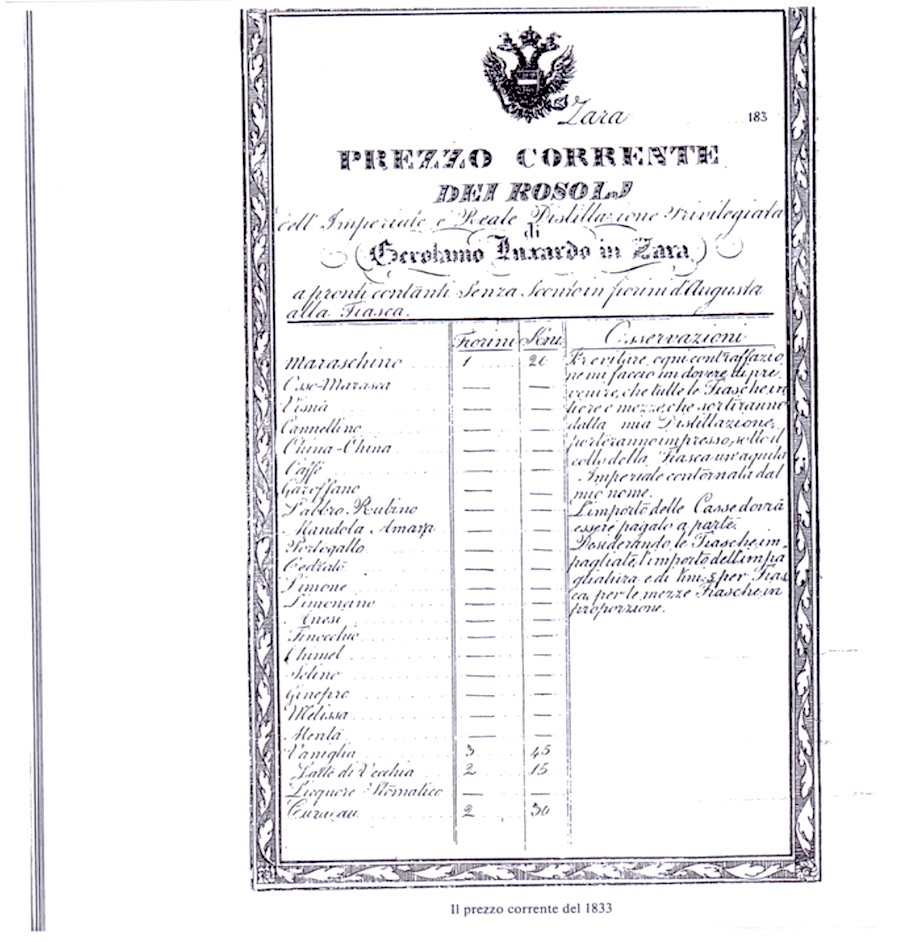 Zara 183
PREZZO CORRENTE
DEI ROSOLJ
dell' Imperiale e Reale Distillazione Privilegiata
di
Gerolamo Luxardo in Zara
a pronti contanti Senza Sconto in fiorini d'Augusta
alla Fiasca.
Fiorini
Maraschino 1 20
Osso-Marasca — —
Visnà — —
Cannellino — —
China-China — —
Caffè — —
Garoffano — —
Labbro-Rubino — —
Mandola Amara — —
Portogallo — —
Cedrato — —
Limone — —
Limonano — —
Anesi — —
Finocchio — —
Chimel — —
Selino — —
Ginepro — —
Melissa — —
Menta — —
Vaniglia 3 45
Latte di Vecchia 2 15
Liequore Stomatico — —
Curaçau 2 30
Osservazioni
Per evitare, ogni contraffazio
ne mi faccio un dovere di pre
venire, che tutte le Fiasche, in
tiere e mezze, che sortiranno
dalla mia Distillazione,
porteranno impresso, sotto il
collo della Fiasca un'aquila
Imperiale contornata dal
mio nome.
L'importo delle Casse dovrà
essere pagato a parte.
Desiderando le Fiasche, im-
pagliate, l'importo dell'impa
gliatura e di 5 per Fias
ca, per le mezze Fiasche, in
proporzione.
Il prezzo corrente del 1833